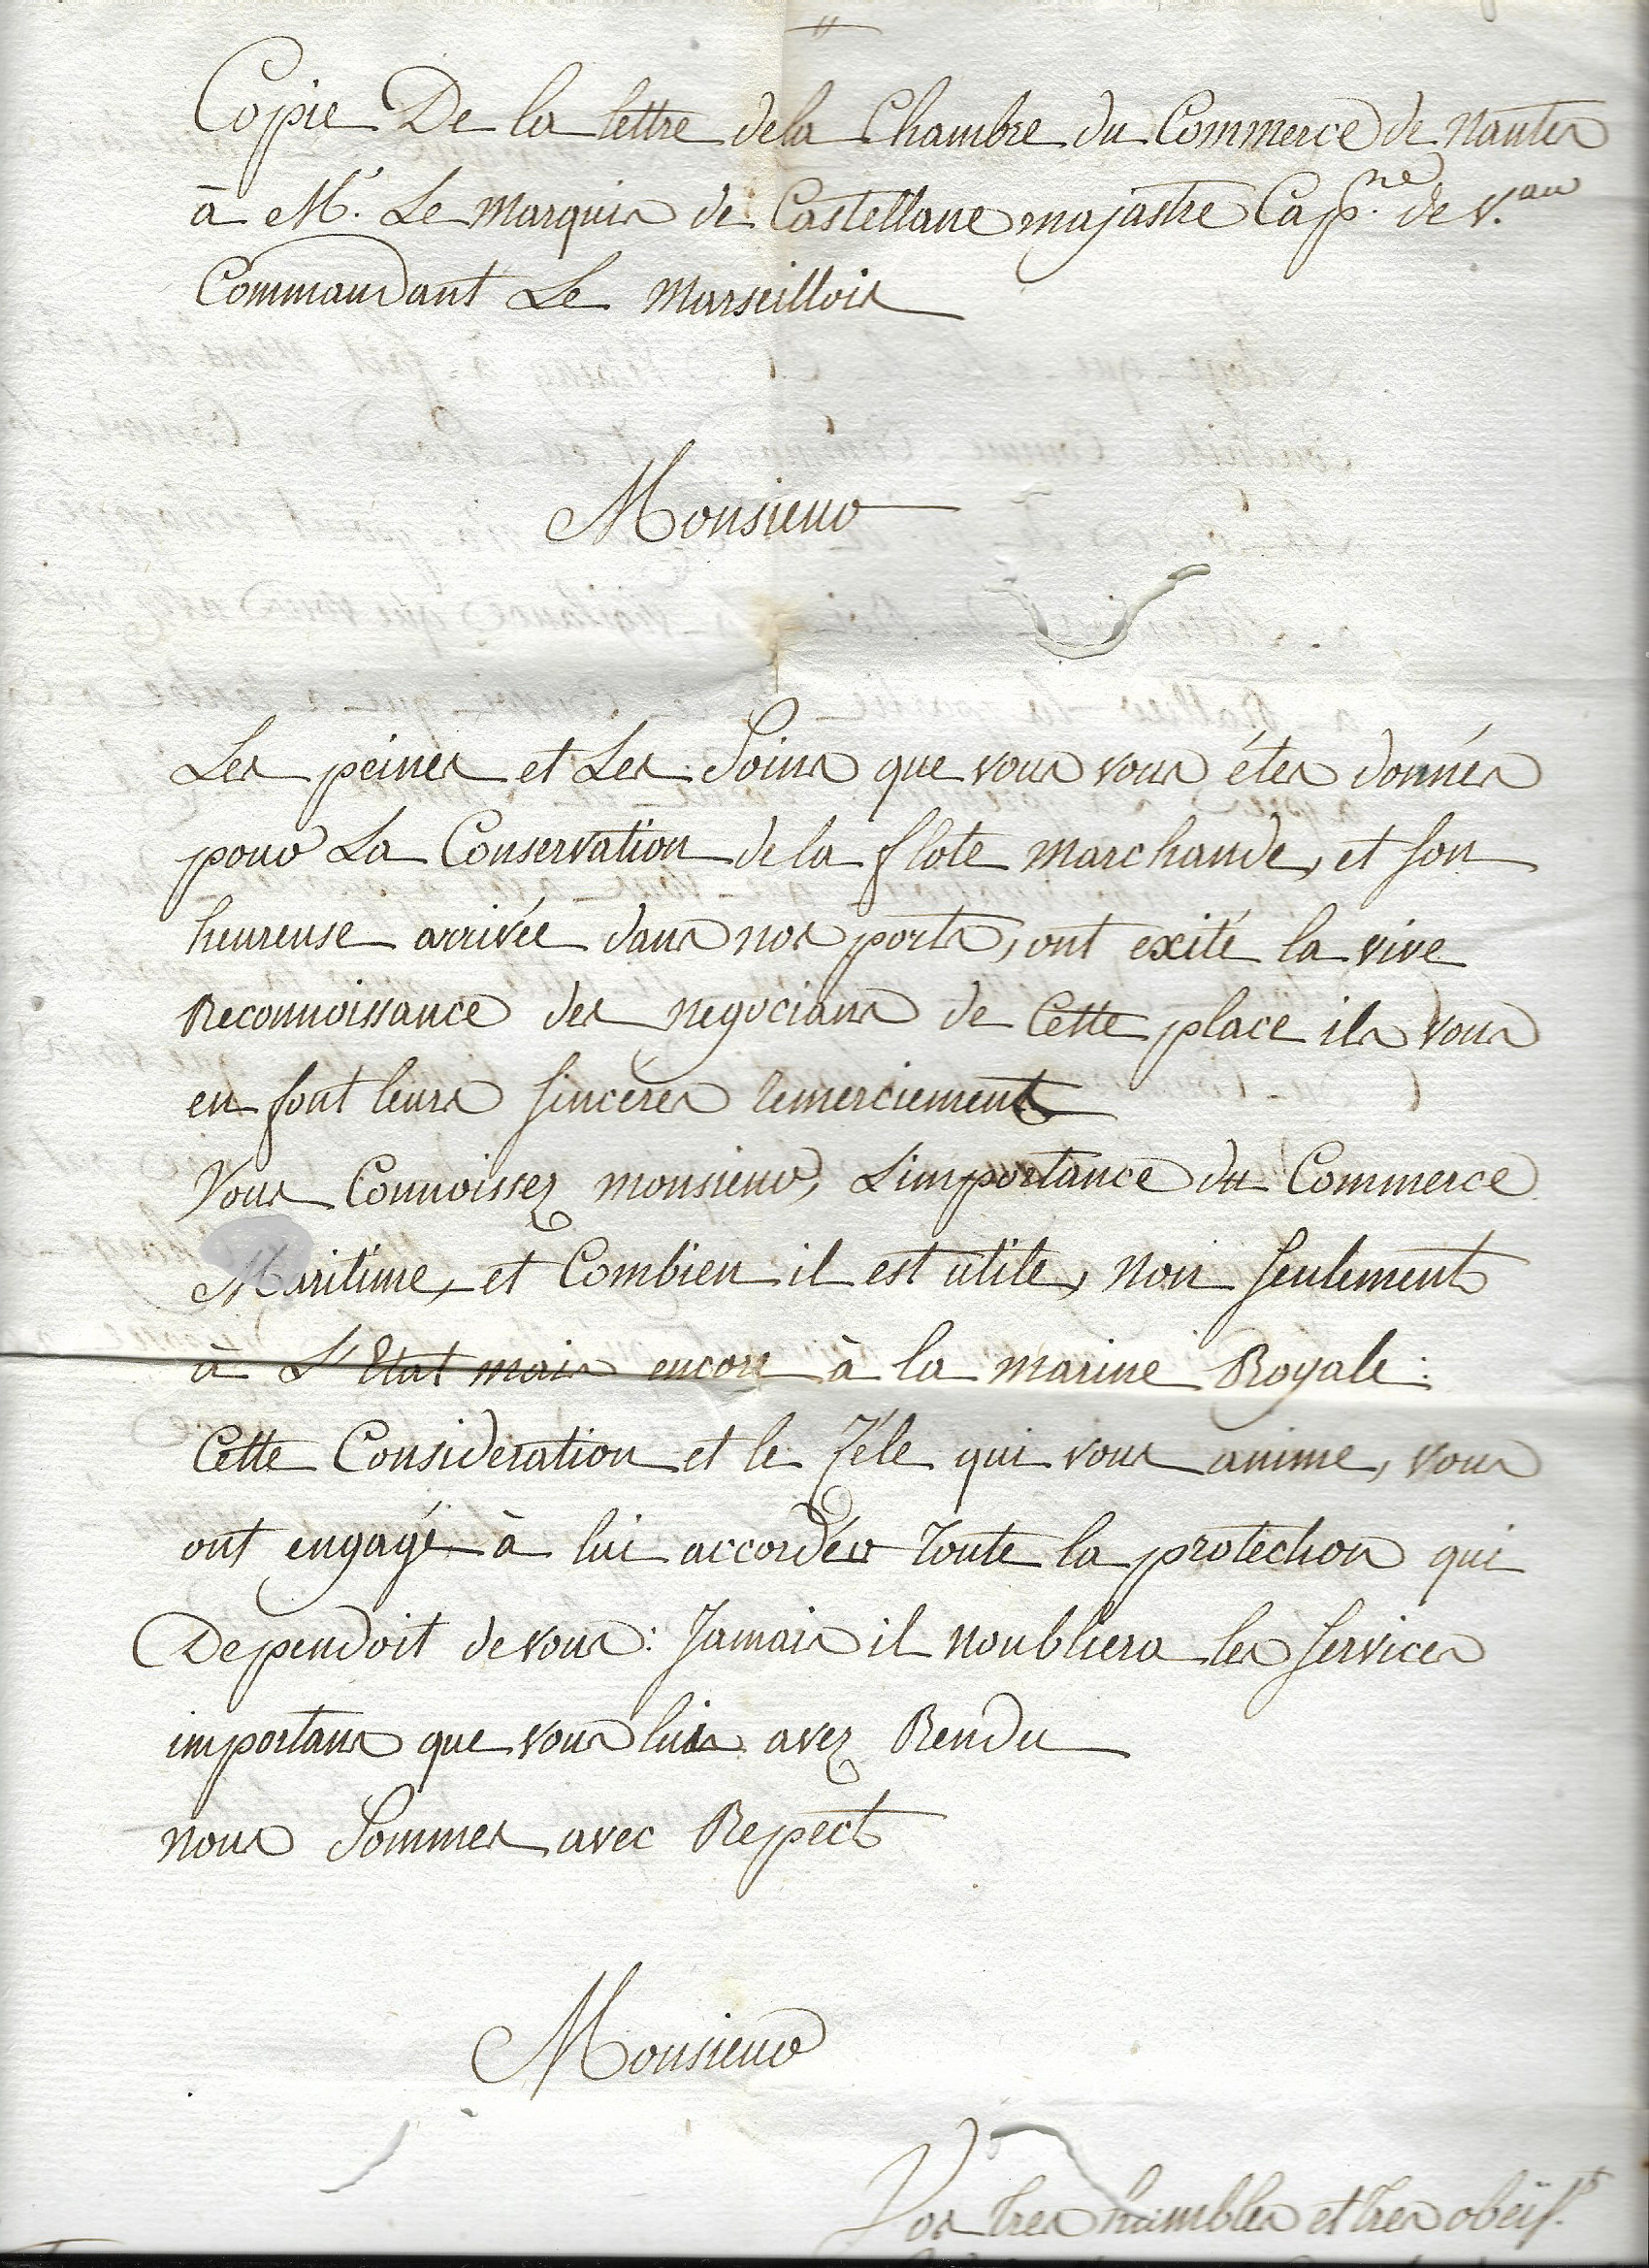 Copie De la lettre dela Chambre du Commerce de nantes
à Mr. Le Marquis de Castellane majastre Capne. de v.au
Commandant Le Marseillois
Monsieur
Les peines et Les Soins que vous vous étes donnés
pour La Conservation de la flote marchande, et son
heureuse arrivée dans nos ports, ont exité la vive
Reconnoissance des negocians de Cette place ils vous
en font leurs sincéres remerciements
Vous Connoissez monsieur, L'importance du Commerce
Maritime, et Combien il est utile, non seulement
à L'Etat mais encore à la marine Royale:
Cette Consideration et le Zéle qui vous anime, vous
ont engagé à lui accordér toute la protection qui
Dependoit de vous: Jamais il noubliera les services
importans que vous lui avez Rendu
nous Sommes avec Repect
Monsieur
Vos tres humbles et tres obéiss.ts